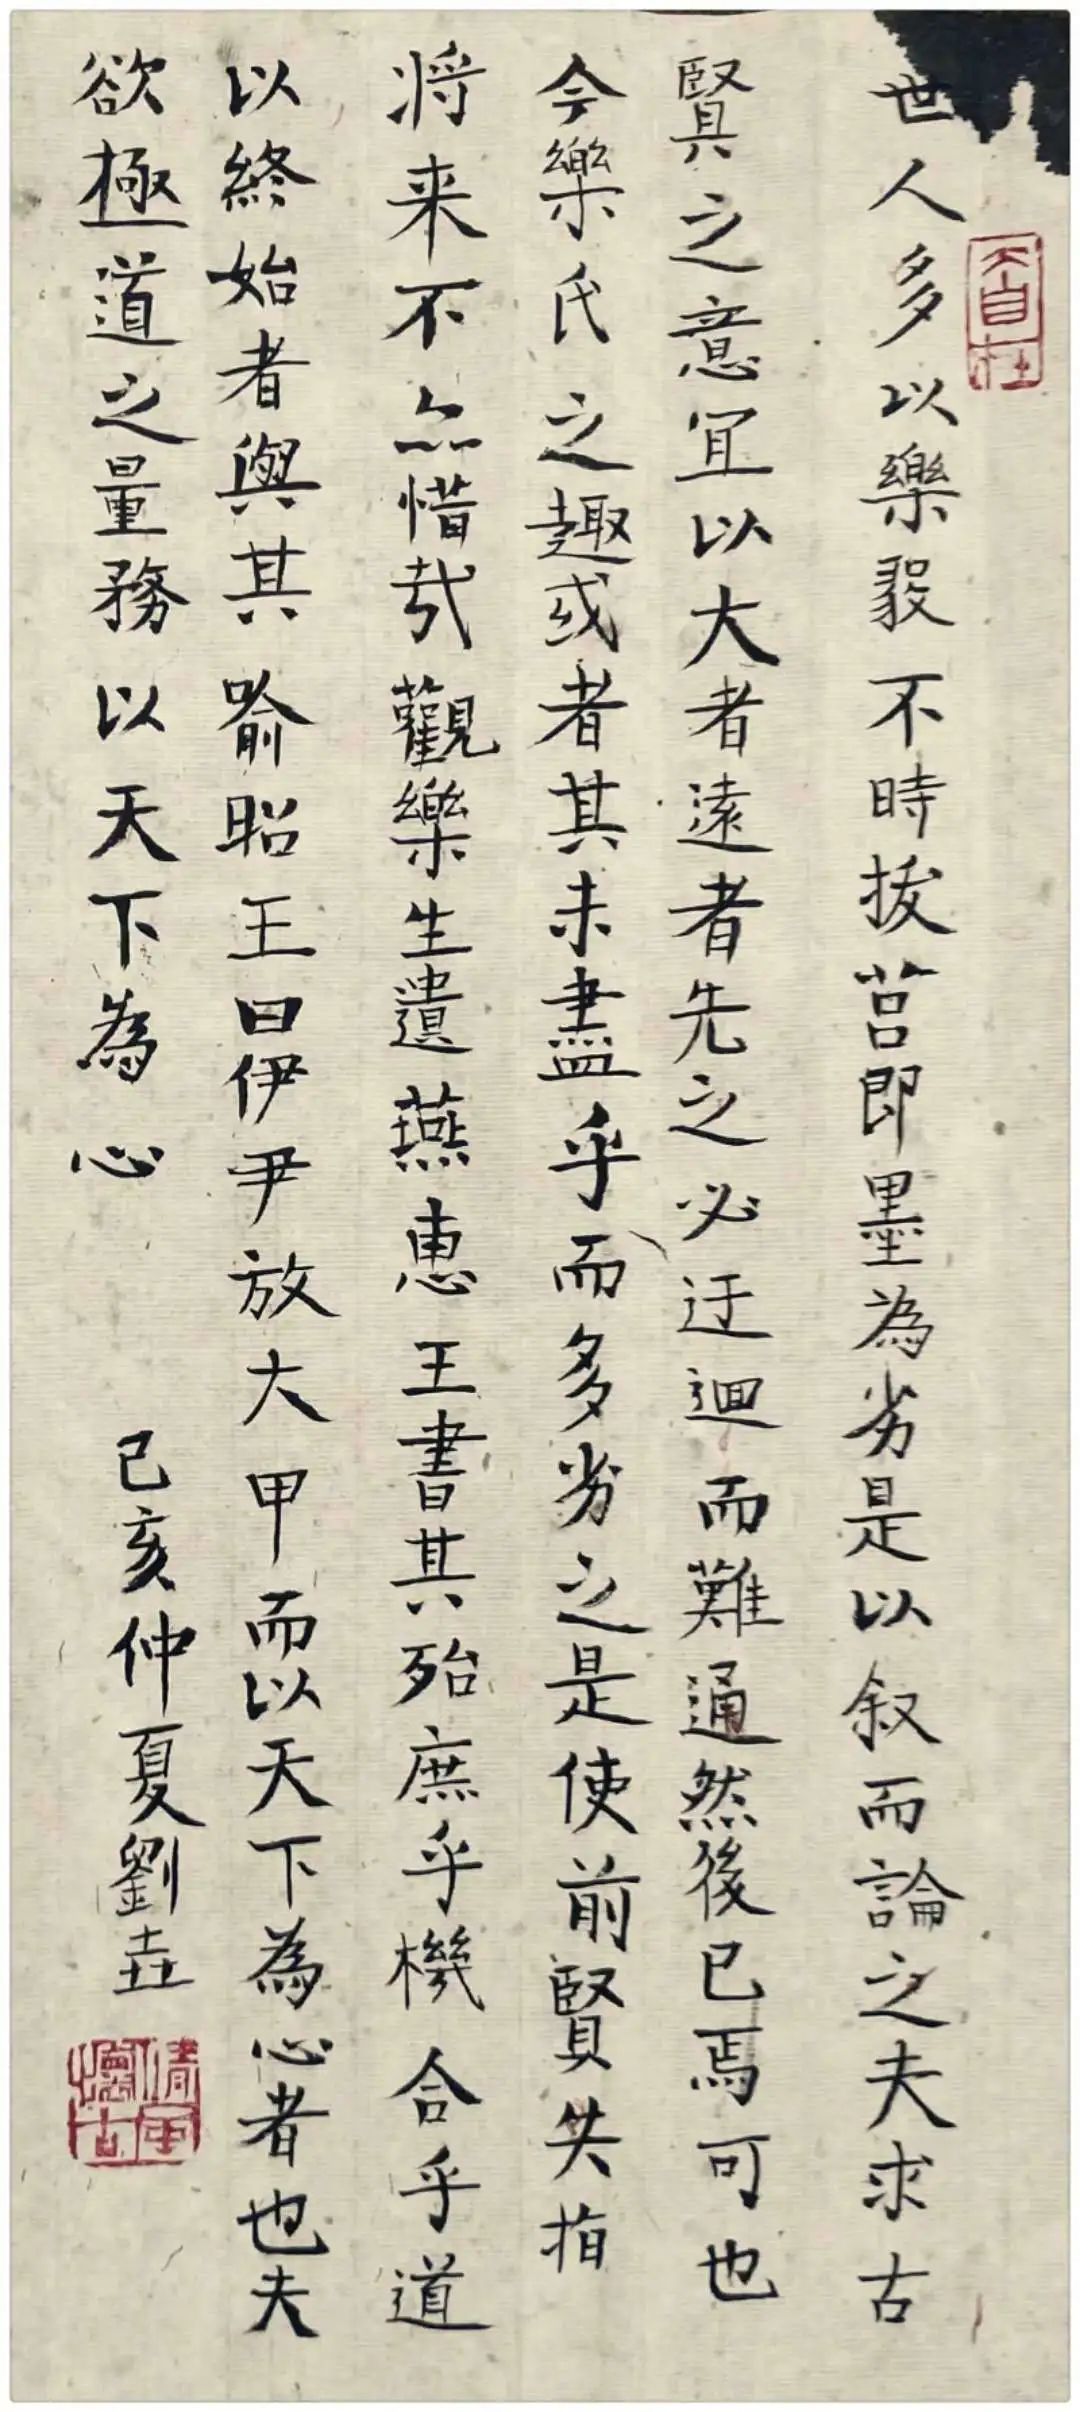 世人多以樂毅不時拔莒即墨為劣是以叙而論之夫求古
賢之意宜以大者遠者先之必迂迴而難通然後已焉可也
今樂氏之趣或者其未盡乎而多劣之是使前賢失指
将来不亦惜哉觀樂生遺燕惠王書其殆庶乎機合乎道
以終始者與其喻昭王曰伊尹放大甲而以天下為心者也夫
欲極道之量務以天下為心
己亥仲夏劉垚